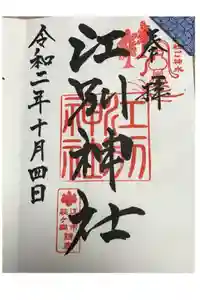 奉拝
江別神社
令和二年十月四日
江別神社